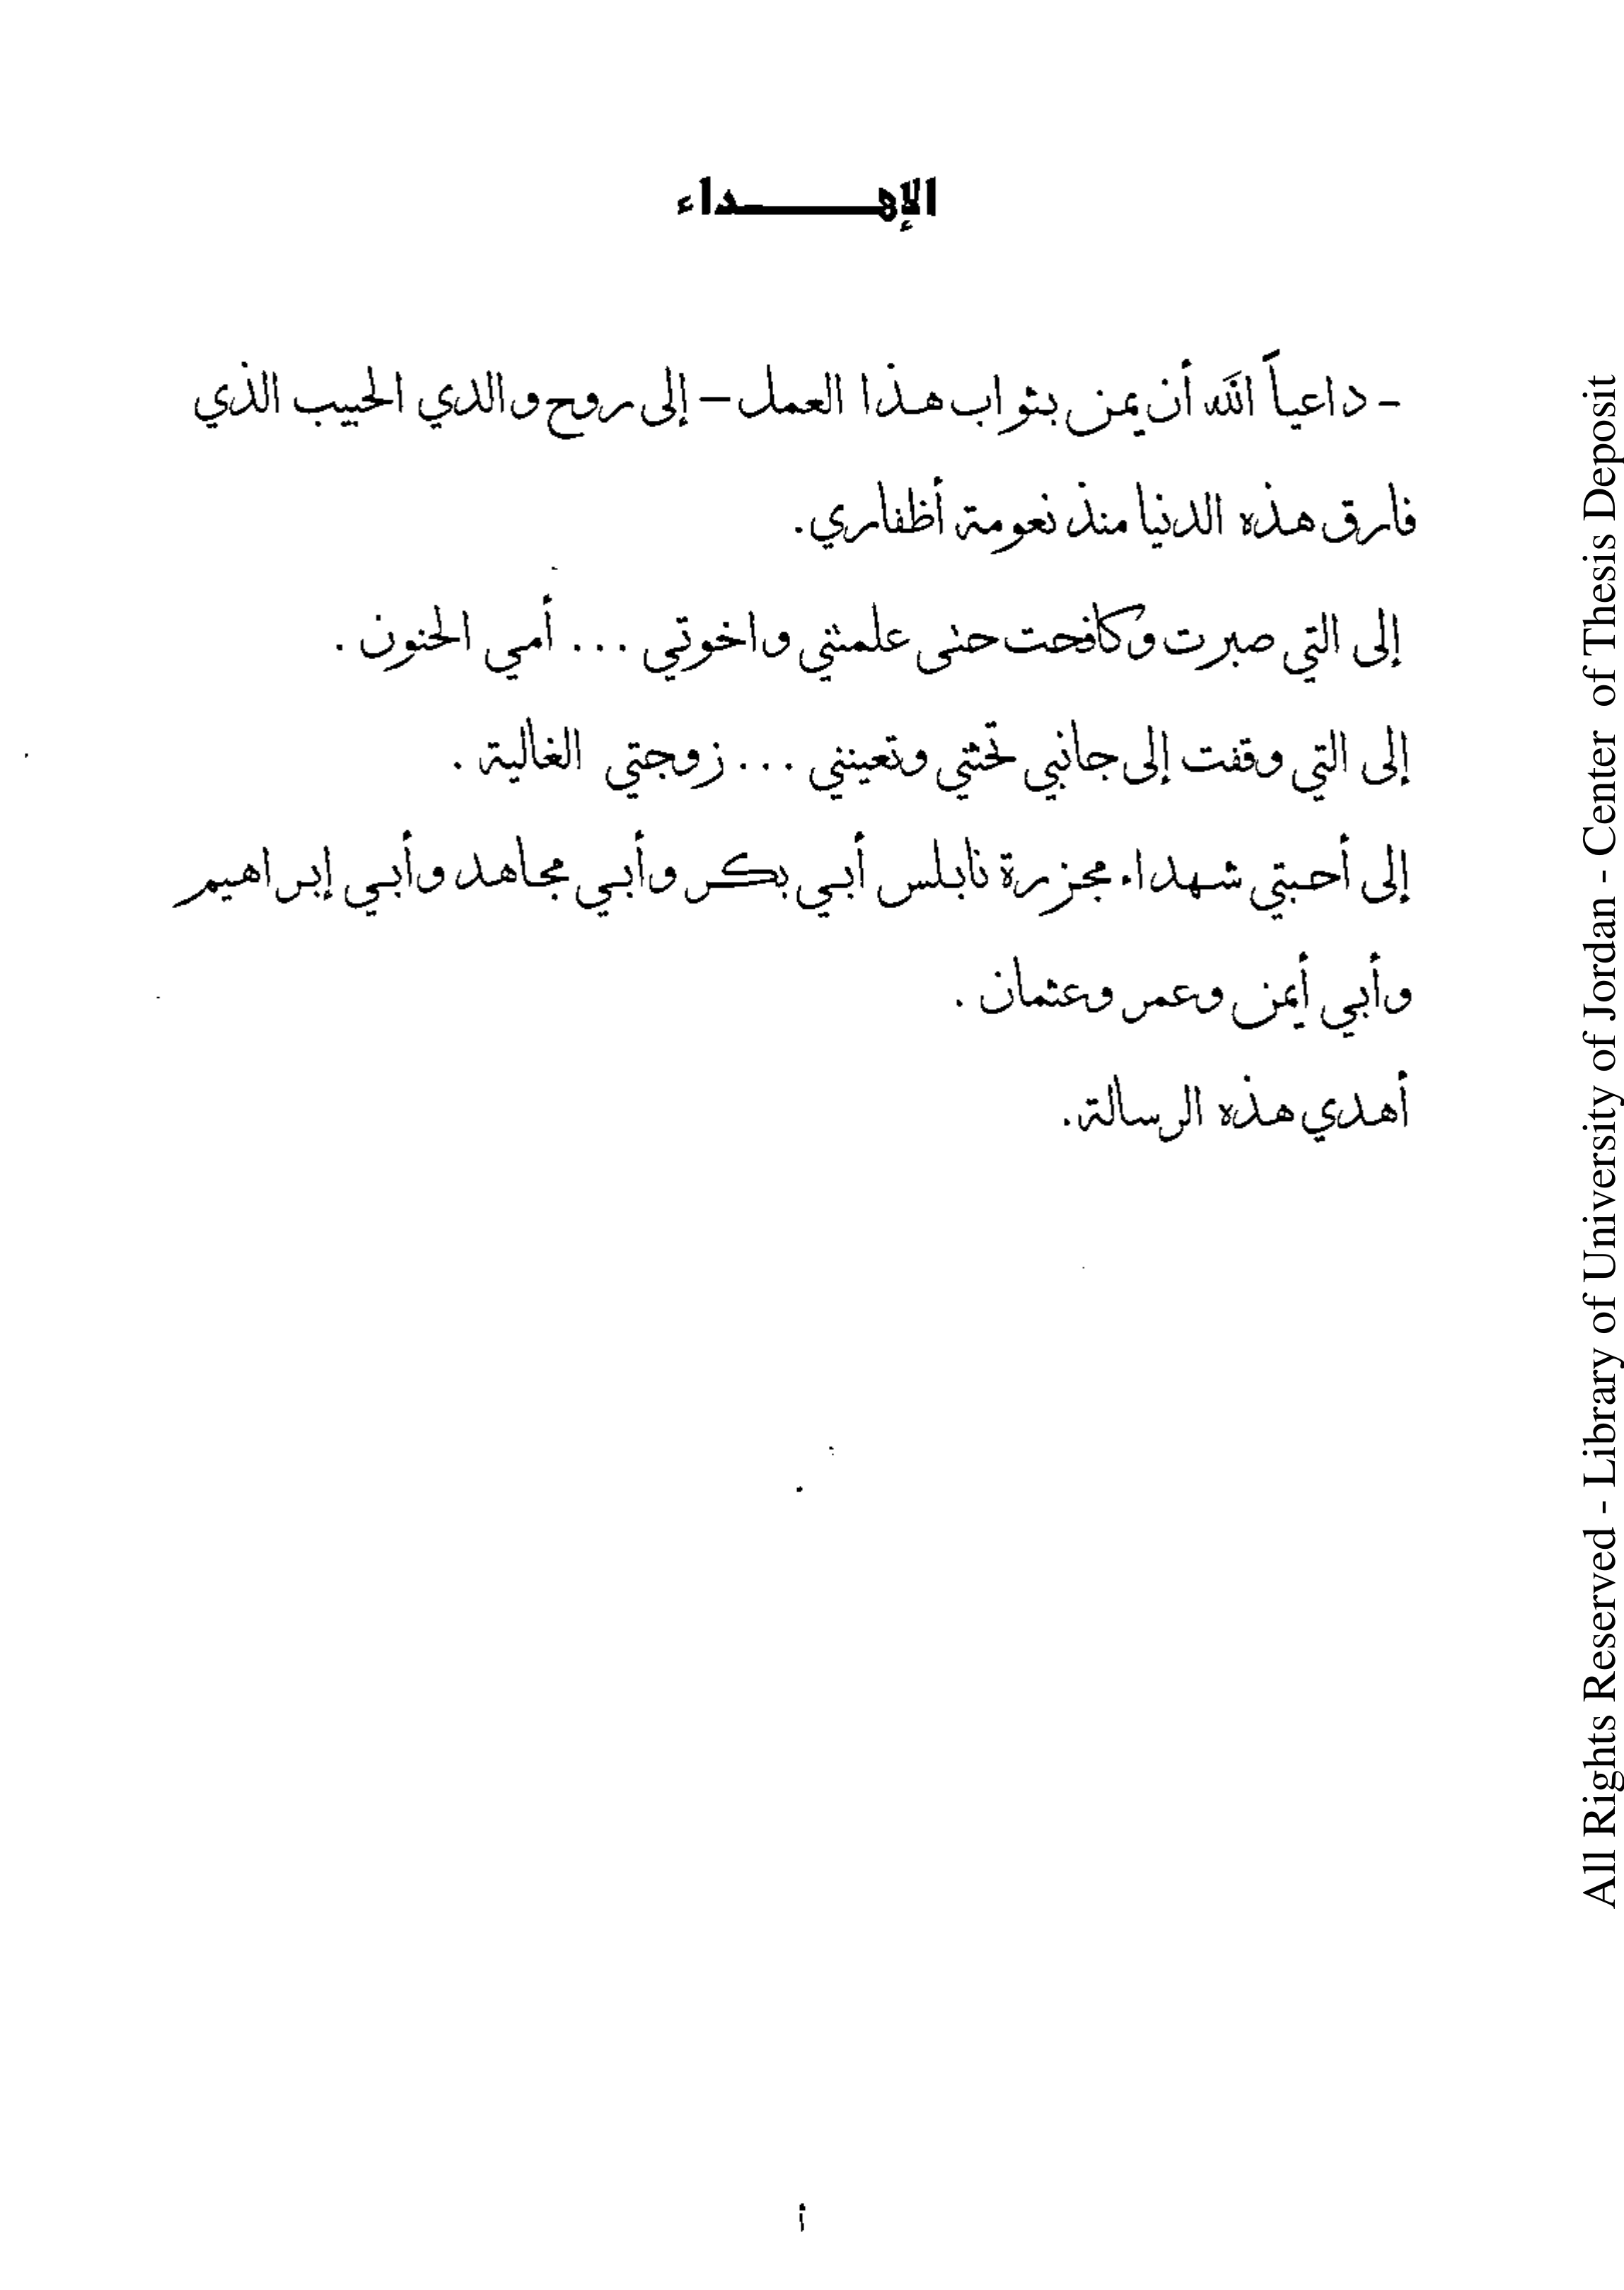 الإهــــــداء
- داعياً الله أن يمن بثواب هذا العمل – إلى روح والدي الحبيب الذي
فارق هذه الدنيا منذ نعومة أظفاري.
إلى التي صبرت وكافحت حتى علمتني واخوتي ... أمي الحنون .
إلى التي وقفت إلى جانبي تحثني وتعينني ... زوجتي الغالية .
إلى أحبتي شهداء مجزرة نابلس أبي بكر وأبي مجاهد وأبي إبراهيم
وأبي أيمن وعمر وعثمان .
أهدي هذه الرسالة.
أ
All Rights Reserved - Library of University of Jordan - Center of Thesis Deposit